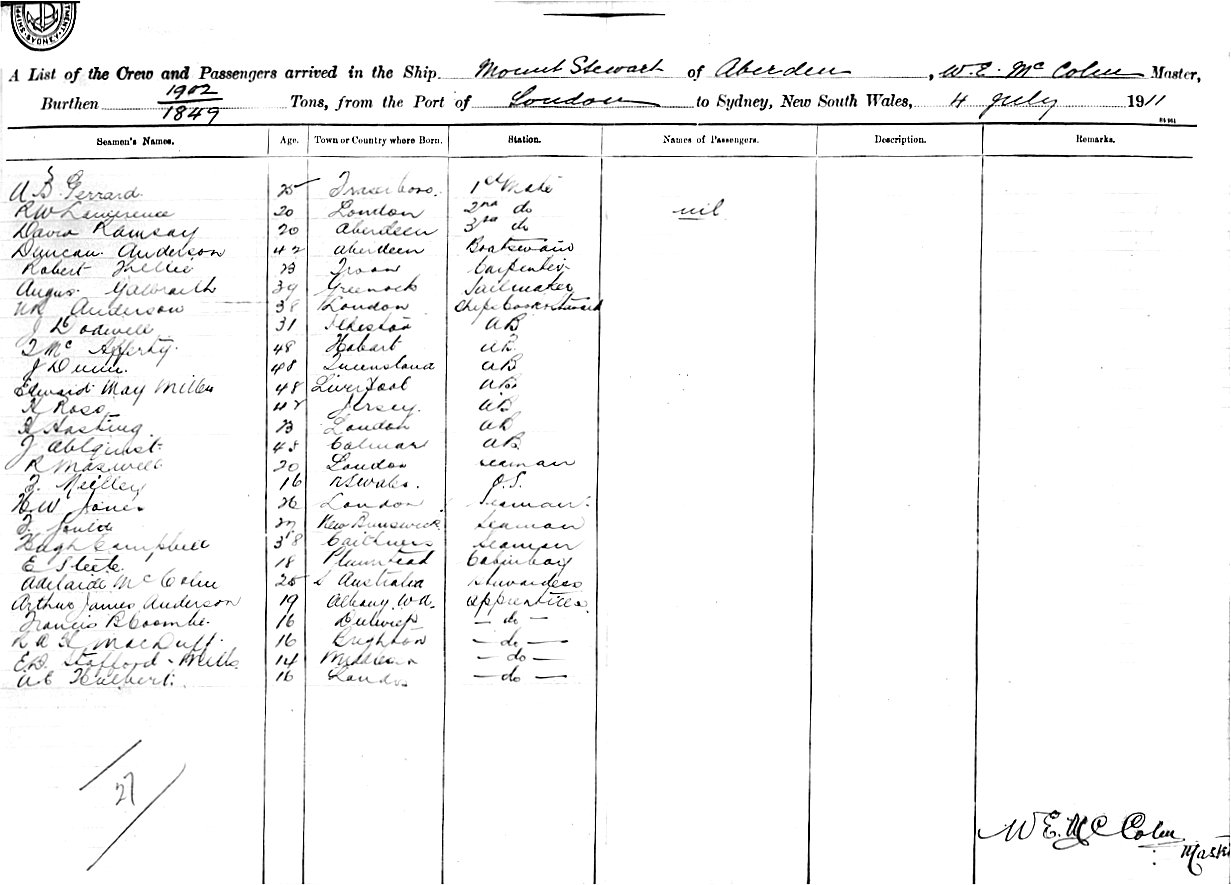 SHIPPING SYDNEY
A List of the Crew and Passengers arrived in the Ship Mount Stewart of Aberdeen, W. E. Mc Colm Master,
Burthen 1902/1849 Tons, from the Port of London to Sydney, New South Wales, 4 July 1911
Seamen's Names. Age. Town or Country where Born. Station. Names of Passengers. Description. Remarks.
A S Gerrard 25 1st Mate
R W Lawrence 20 London 2nd do nil
David Ramsay 20 Aberdeen 3rd do
Duncan Anderson 42 Aberdeen Boatswain
Robert 23 Troon Carpenter
Angus Galbraith 39 Greenock Sailmaker
Anderson 38 London
J Dodwell 31 AB
Mc Afferty 48 Hobart AB
J Dunn 48 Queensland AB
Edward May Miller 48 Liverpool AB
H Ross Jersey AB
H Hasting 23 London AB
J Ahlquist 48 Calmar AB
R Maxwell 20 London seaman
16 N S Wales O.S.
H W Jones 26 London Seaman
F. Gould New Brunswick Seaman
Hugh Campbell 38 Caithness Seaman
E Steele 18 Plumstead Cabinboy
Adelaide Mc Colm 25 S Australia Stewardess
Arthur James Anderson 19 Albany W.A. apprentices
Francis B Coombe 16 Dulwich - do -
MacDuff 16 Brighton - do -
E. D. Stafford-Mills 14 - do -
A E Hulbert 16 London - do -
27
W E. Mc Colm
Master